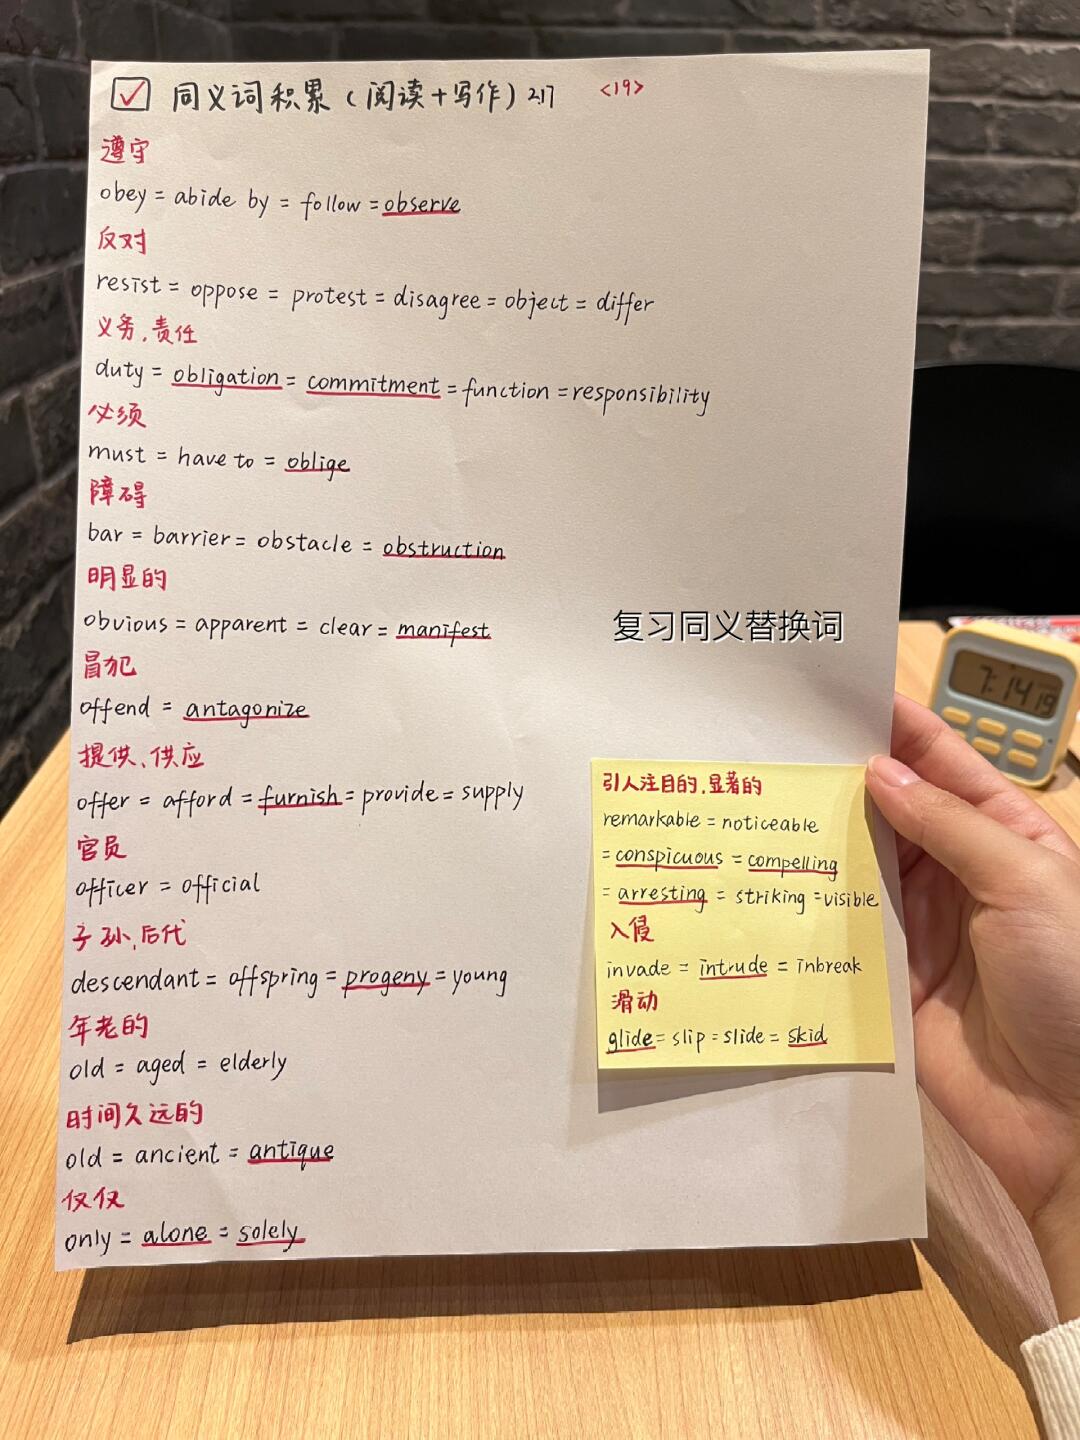 同义词积累(阅读+写作) 217 <19>
遵守
obey = abide by = follow = observe
反对
resist = oppose = protest = disagree = object = differ
义务,责任
duty = obligation = commitment = function = responsibility
必须
must = have to = oblige
障碍
bar = barrier = obstacle = obstruction
明显的
obvious = apparent = clear = manifest
冒犯
offend = antagonize
提供、供应
offer = afford = furnish = provide = supply
官员
officer = official
子孙,后代
descendant = offspring = progeny = young
年老的
old = aged = elderly
时间久远的
old = ancient = antique
仅仅
only = alone = solely
复习同义替换词
引人注目的,显著的
remarkable = noticeable
= conspicuous = compelling
= arresting = striking = visible
入侵
invade = intrude = inbreak
滑动
glide = slip = slide = skid
7:14 19